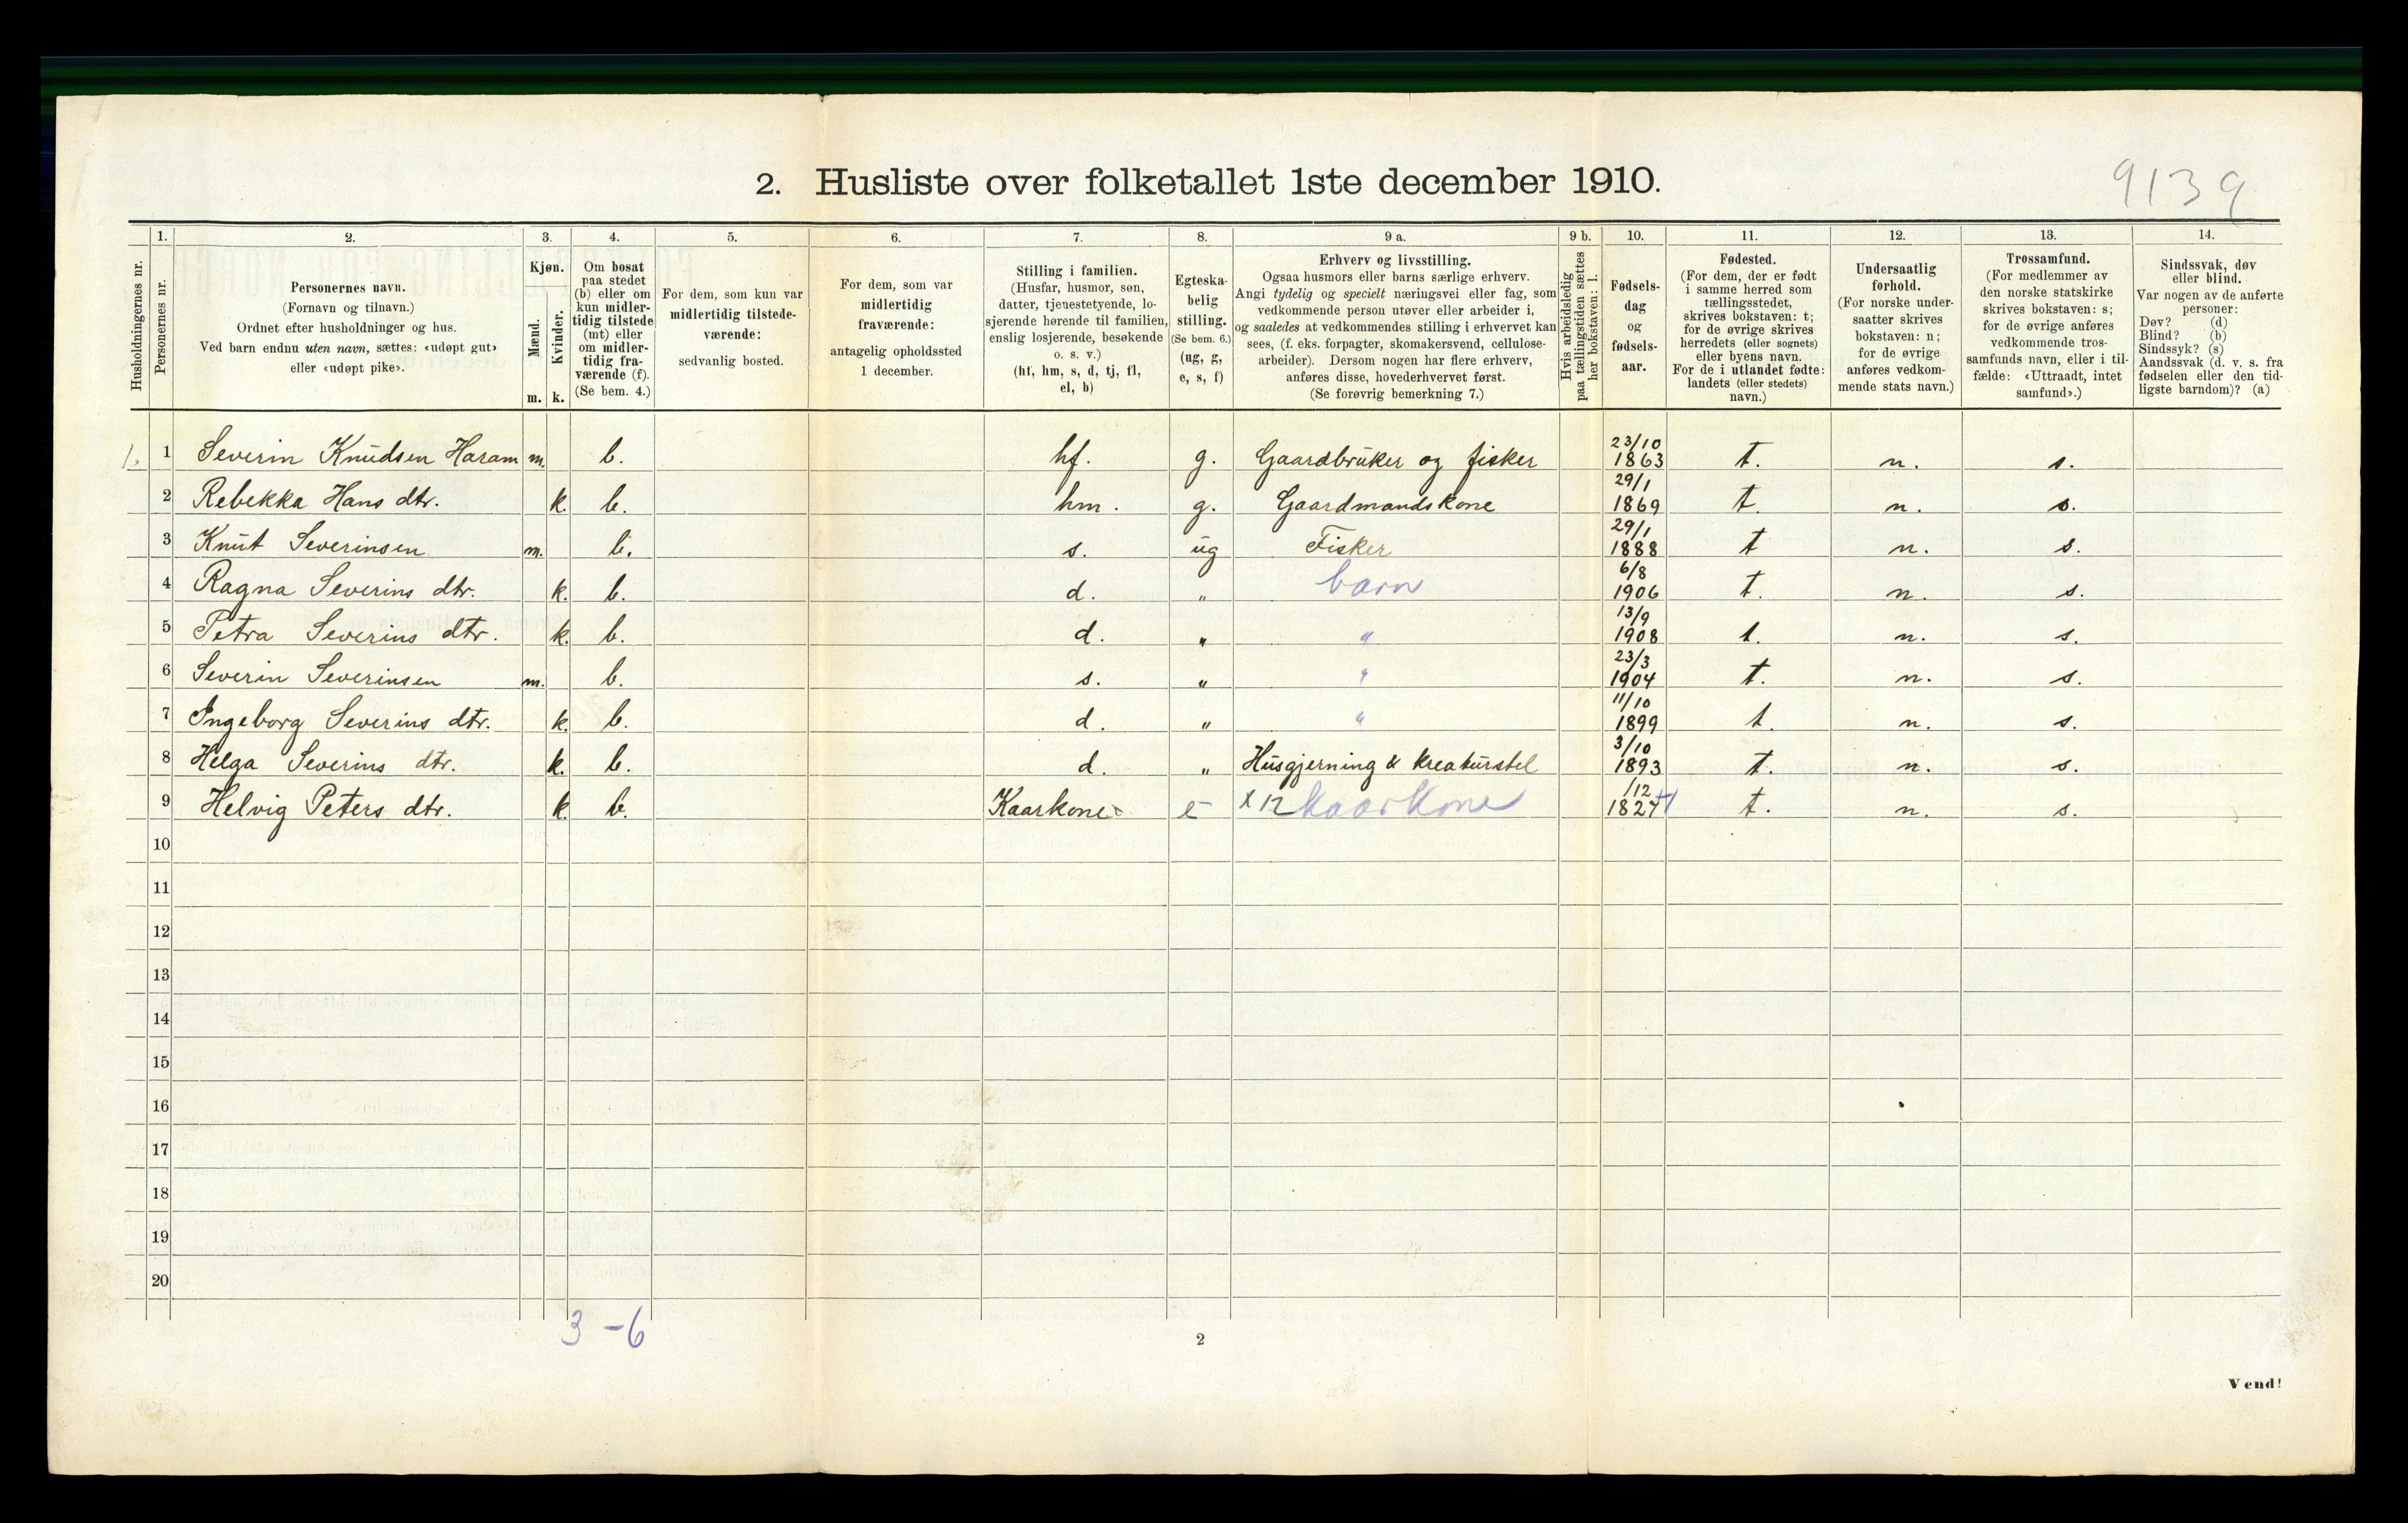 2. Husliste over folketallet 1ste december 1910.
9139
1. 2. 3. 4. 5. 6. 7. 8. 9 a. 9 b. 10. 11. 12. 13. 14.
Husholdningernes nr.
Personernes nr.
Personernes navn.
(Fornavn og tilnavn.)
Ordnet efter husholdninger og hus.
Ved barn endnu uten navn, sættes: «udøpt gut»
eller «udøpt pike».
Kjøn.
Mænd.
Kvinder.
m. k.
Om bosat
paa stedet
(b) eller om
kun midler-
tidig tilstede
(mt) eller
om midler-
tidig fra-
værende (f).
(Se bem. 4.)
For dem, som kun var
midlertidig tilstede-
værende:
sedvanlig bosted.
For dem, som var
midlertidig
fraværende:
antagelig opholdssted
1 december.
Stilling i familien.
(Husfar, husmor, søn,
datter, tjenestetyende, lo-
sjerende hørende til familien,
enslig losjerende, besøkende
o. s. v.)
(hf, hm, s, d, tj, fl,
el, b)
Egteska-
belig
stilling.
(Se bem. 6.)
(ug, g,
e, s, f)
Erhverv og livsstilling.
Ogsaa husmors eller barns særlige erhverv.
Angi tydelig og specielt næringsvei eller fag, som
vedkommende person utøver eller arbeider i,
og saaledes at vedkommendes stilling i erhvervet kan
sees, (f. eks. forpagter, skomakersvend, cellulose-
arbeider). Dersom nogen har flere erhverv,
anføres disse, hovederhvervet først.
(Se forøvrig bemerkning 7.)
Hvis arbeidsledig
paa tællingstiden sættes
her bokstaven: l.
Fødsels-
dag
og
fødsels-
aar.
Fødested.
(For dem, der er født
i samme herred som
tællingsstedet,
skrives bokstaven: t;
for de øvrige skrives
herredets (eller sognets)
eller byens navn.
For de i utlandet fødte:
landets (eller stedets)
navn.)
Undersaatlig
forhold.
(For norske under-
saatter skrives
bokstaven: n;
for de øvrige
anføres vedkom-
mende stats navn.)
Trossamfund.
(For medlemmer av
den norske statskirke
skrives bokstaven: s;
for de øvrige anføres
vedkommende tros-
samfunds navn, eller i til-
fælde: «Uttraadt, intet
samfund».)
Sindssvak, døv
eller blind.
Var nogen av de anførte
personer:
Døv? (d)
Blind? (b)
Sindssyk? (s)
Aandssvak (d. v. s. fra
fødselen eller den tid-
ligste barndom)? (a)
1. 1 Severin Knudsen Haram m. b. hf. g. Gaardbruker og fisker 23/10 1863 t. n. s.
2 Rebekka Hans dtr. k. b. hm. g. Gaardmandskone 29/1 1869 t. n. s.
3 Knut Severinsen m. b. s. ug Fisker 29/1 1888 t n. s.
4 Ragna Severins dtr. k. b. d. " barn 6/8 1906 t. n. s.
5 Petra Severins dtr. k. b. d. " " 13/9 1908 t. n. s.
6 Severin Severinsen m. b. s. " " 23/3 1904 t. n. s.
7 Ingeborg Severins dtr. k. b. d. " " 11/10 1899 t. n. s.
8 Helga Severins dtr. k. b. d. " Husgjerning & kreaturstel 3/10 1893 t. n. s.
9 Helvig Peters dtr. k. b. Kaarkone e x 12 kaarkone /12 1827 t. n. s.
10
11
12
13
14
15
16
17
18
19
20
3 - 6
2
Vend!